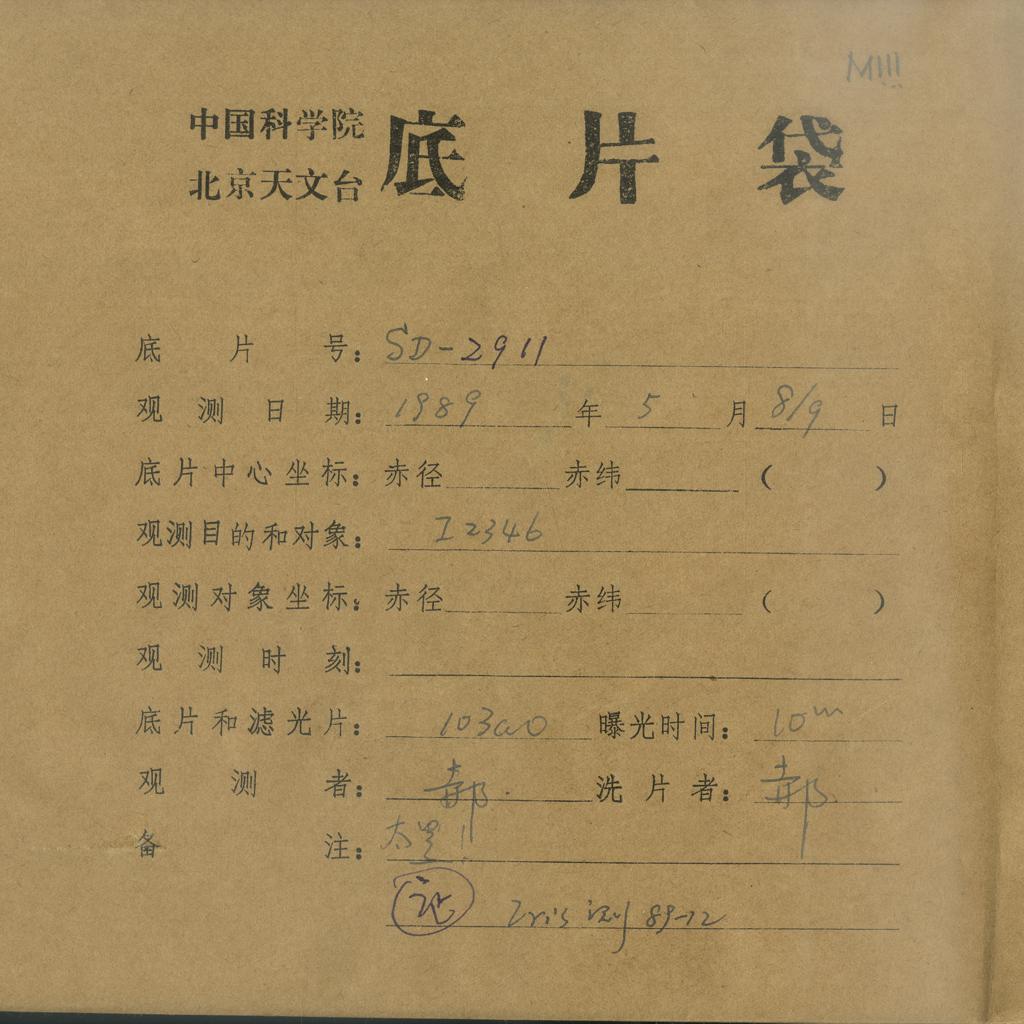 MIII
中国科学院
北京天文台 底片袋
底片号: SD-2911
观测日期: 1989年5月8/9日
底片中心坐标: 赤径 赤纬 ( )
观测目的和对象: I2346
观测对象坐标: 赤径 赤纬 ( )
观测时刻:
底片和滤光片: 103aO 曝光时间: 10m
观测者: 郝. 洗片者: 郝.
备注: 太黑!
Iris 测 89-12